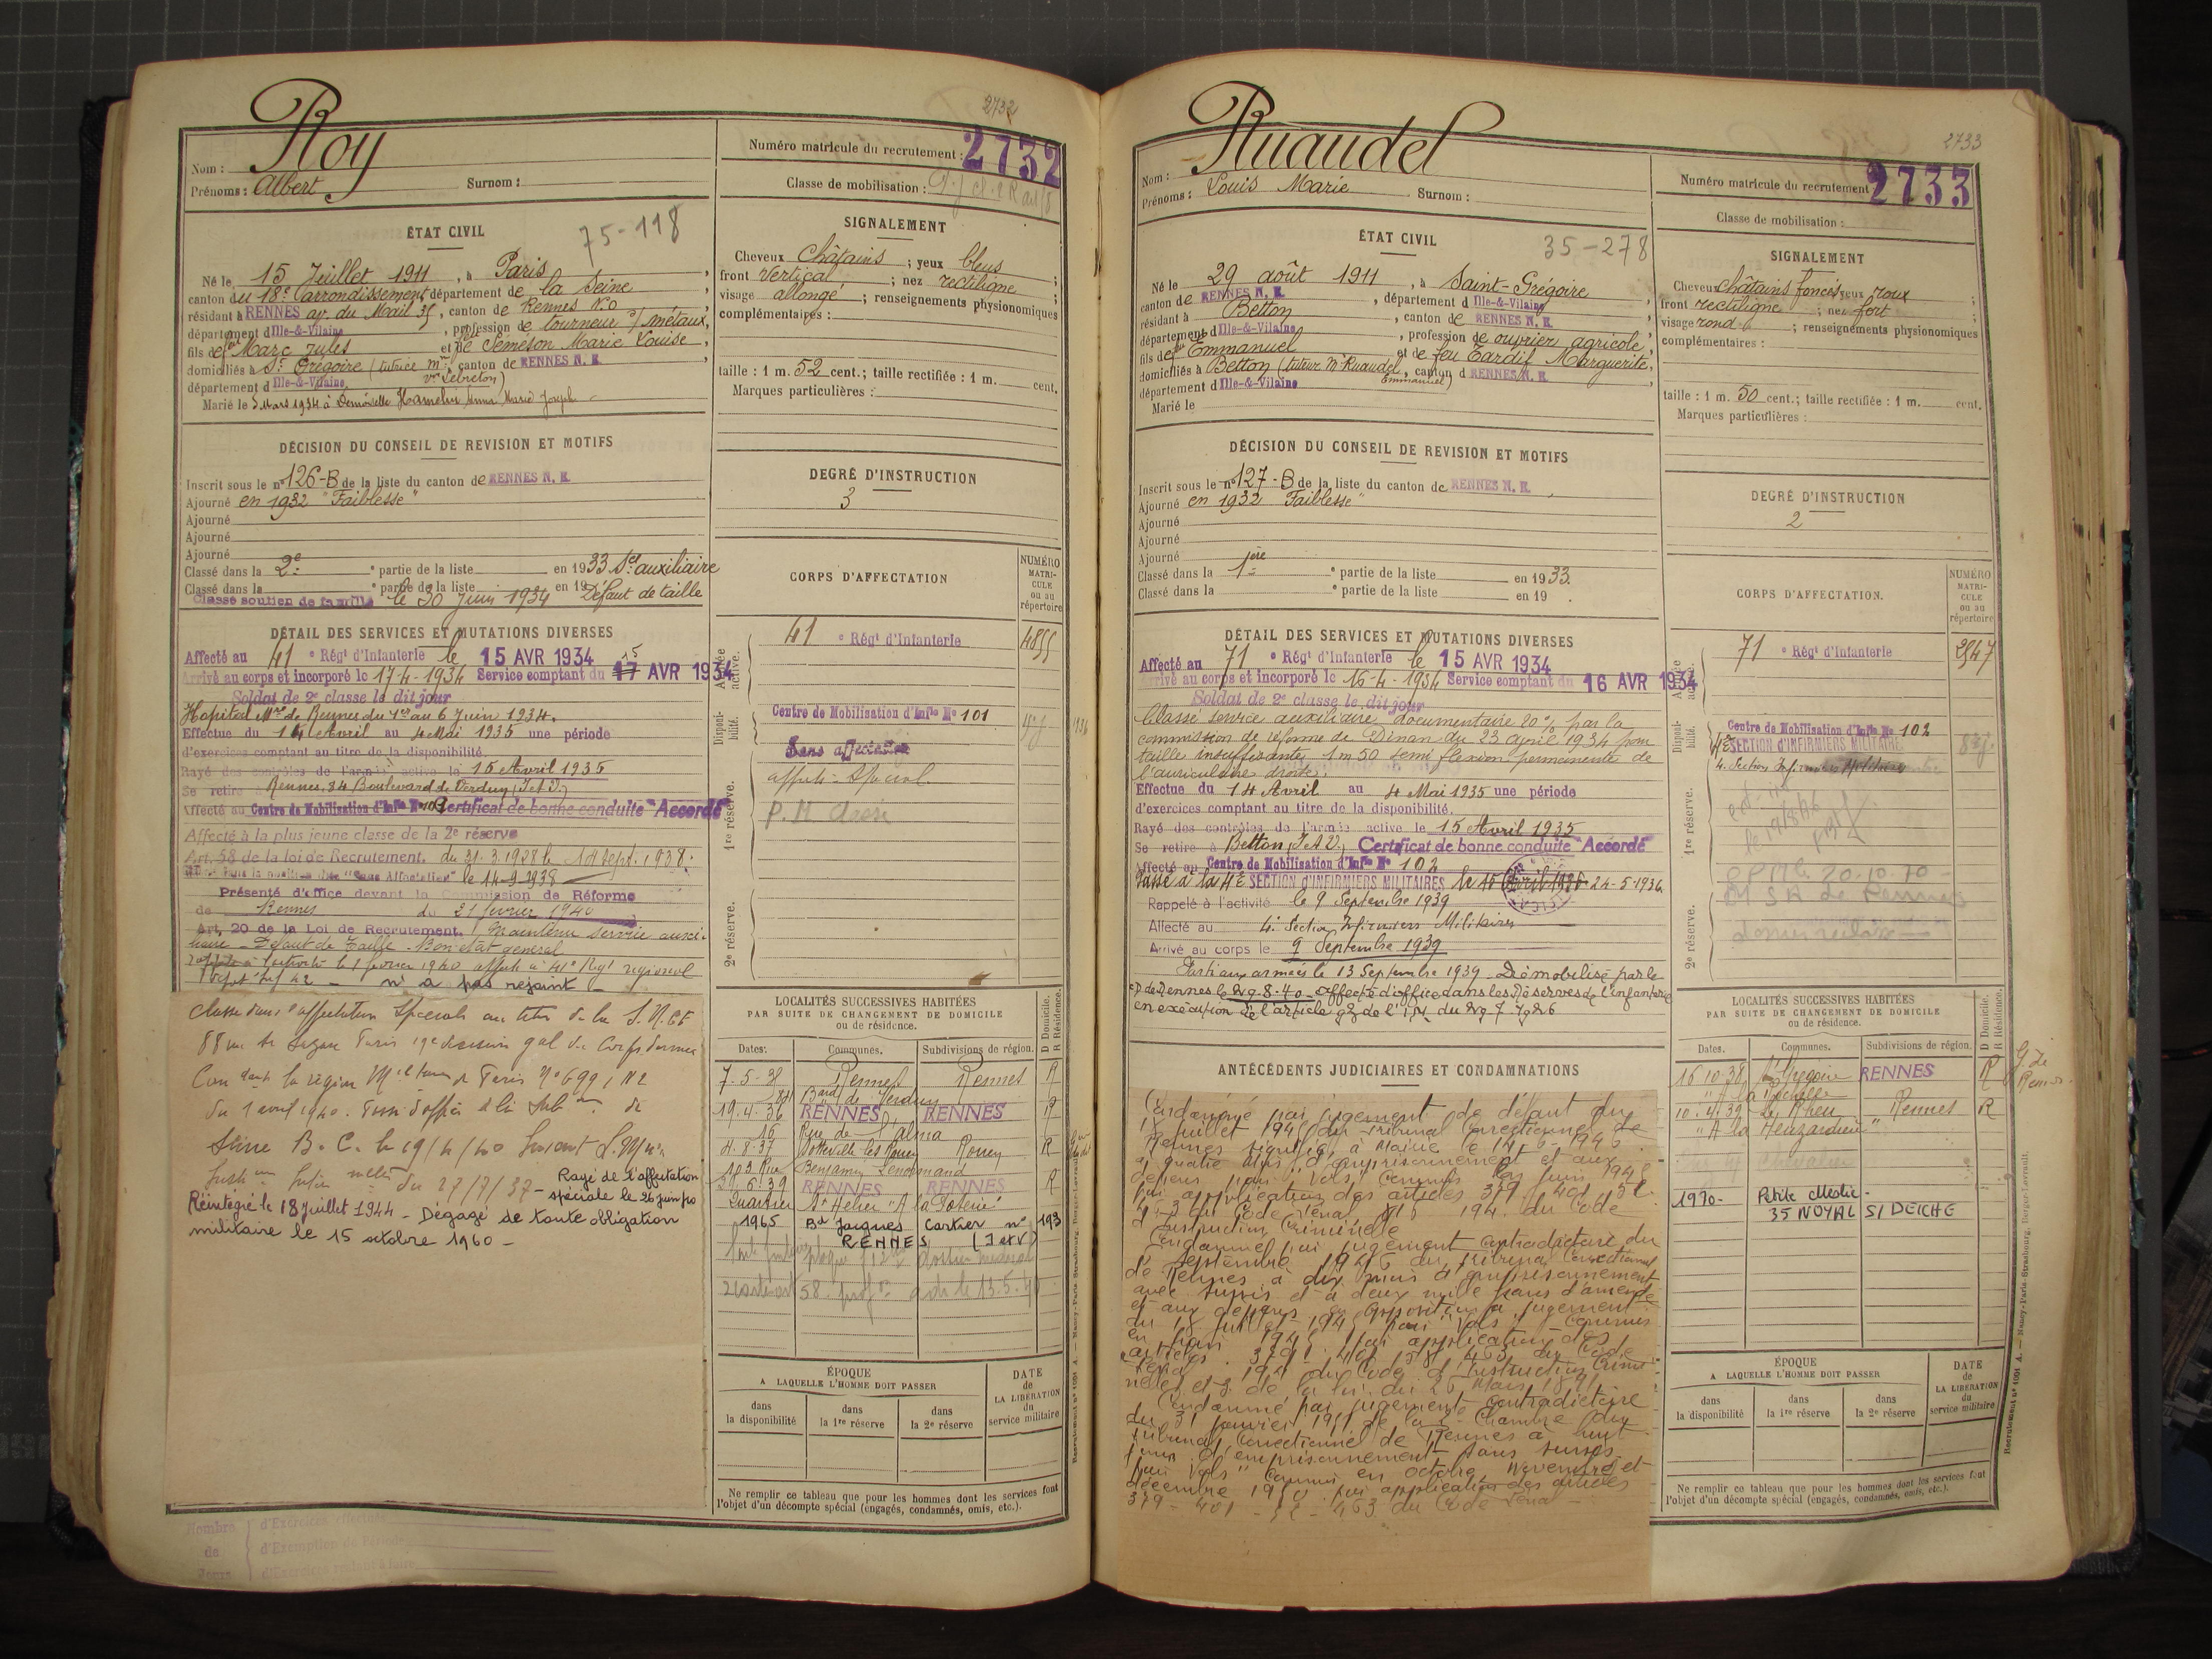 2732
Roy
Nom :
Prénoms : Albert Surnom :
Numéro matricule du recrutement : 2732
Classe de mobilisation :
ÉTAT CIVIL
75-118
Né le 15 Juillet 1911, à Paris,
canton du 18e arrondissement, département de la Seine,
résidant à RENNES av. du Mail 35, canton de Rennes N.O
département d Ille-&-Vilaine, profession de tourneur s/ métaux,
fils de feu Marc Jules et de Semeson Marie Louise,
domiciliés à St Grégoire (tutrice Mme, canton de RENNES N. E.
département d Ille-&-Vilaine, vve Lebreton)
Marié le 5 Mars 1934 à Demoiselle Hamelin Anna Marie Joseph
SIGNALEMENT
Cheveux châtains ; yeux bleus ;
front vertical ; nez rectiligne ;
visage allongé ; renseignements physionomiques
complémentaires :
taille : 1 m. 52 cent.; taille rectifiée : 1 m. cent.
Marques particulières :
DÉCISION DU CONSEIL DE REVISION ET MOTIFS
Inscrit sous le n° 126-B de la liste du canton de RENNES N. E.
Ajourné en 1932 "Faiblesse"
Ajourné
Ajourné
Ajourné
Classé dans la 2e • partie de la liste en 1933 Sce auxiliaire
Classé dans la • partie de la liste en 19 Défaut de taille
Classé soutien de famille le 30 Juin 1934
DEGRÉ D'INSTRUCTION
3
CORPS D'AFFECTATION
NUMÉRO MATRI-CULE ou au répertoire
Armée active.
41 e Régt d'Infanterie 4855
Disponi-bilité.
Centre de Mobilisation d'Infie N° 101
1re réserve.
Sans affectation
affecté Spécial
2e réserve.
DÉTAIL DES SERVICES ET MUTATIONS DIVERSES
Affecté au 41 e Régt d'Infanterie le 15 AVR 1934
Arrivé au corps et incorporé le 17-4-1934 Service comptant du 15 17 AVR 1934
Soldat de 2e classe le dit jour
Hopital Mre de Rennes du 1er au 6 Juin 1934.
Effectue du 14 Avril au 4 Mai 1935 une période
d'exercices comptant au titre de la disponibilité
Rayé des contrôles de l'armée active le 15 Avril 1935
Se retire à Rennes, 84 Boulevard de Verdun (I et V.)
Affecté au Centre de Mobilisation d'Infie N° 101 Certificat de bonne conduite "Accordé"
Affecté à la plus jeune classe de la 2e réserve
Art. 58 de la loi de Recrutement. du 31.3.1928 le 14 Sept. 1938.
"Sans Affectation" le 14-9-1938
Présenté d'office devant la Commission de Réforme
de Rennes du 21 février 1940
Art. 20 de la Loi de Recrutement. Maintenu Service auxi-
liaire - Défaut de Taille - Bon état général
à l'activité le 1 février 1940 affecté à 41e Regt régional
n'a pas rejoint -
Classé dans l'affectation Spéciale au titre de la S.N.C.F
88 rue St Lazare Paris
la région Mil taire de Paris N° 699
B.C. le 19/4/40
du 27/7/37 - Rayé de l'affectation
spéciale le 26 juin 40
Réintégré le 18 Juillet 1944 - Dégagé de toute obligation
militaire le 15 octobre 1960 -
LOCALITÉS SUCCESSIVES HABITÉES
PAR SUITE DE CHANGEMENT DE DOMICILE
ou de résidence.
D Domicile. R Résidence.
Dates. Communes. Subdivisions de région.
7-5-35 Rennes Rennes R
84 Bard de Verdun
19.4.36 RENNES RENNES R
16 Rue de l'Alma
4.8.37 Sotteville les Rouen Rouen R
103 Rue Benjamin Lenormand
21.6.39 RENNES RENNES R
Quartier St Hélier "A la Poterie"
1965 Bd Jacques Cartier n° 193
RENNES (I et V)
ÉPOQUE
A LAQUELLE L'HOMME DOIT PASSER
DATE de LA LIBÉRATION du service militaire
dans la disponibilité
dans la 1re réserve
dans la 2e réserve
Ne remplir ce tableau que pour les hommes dont les services font
l'objet d'un décompte spécial (engagés, condamnés, omis, etc.).
Nombre de Jours
d'Exercices effectués
d'Exemption de Période
d'Exercices restant à faire
2733
Ruaudel
Nom :
Prénoms : Louis Marie Surnom :
Numéro matricule du recrutement 2733
Classe de mobilisation :
ÉTAT CIVIL
35-278
Né le 29 août 1911, à Saint-Grégoire
canton de RENNES N. E., département d Ille-&-Vilaine
résidant à Betton, canton de RENNES N. E.
département d Ille-&-Vilaine, profession de ouvrier agricole,
fils de feu Emmanuel et de feu Tardif Marguerite,
domiciliés à Betton (tuteur Mr Ruaudel, canton d RENNES N. E.
département d Ille-&-Vilaine Emmanuel)
Marié le
SIGNALEMENT
Cheveux châtains foncés yeux roux ;
front rectiligne ; nez fort
visage rond ; renseignements physionomiques
complémentaires :
taille : 1 m. 50 cent.; taille rectifiée : 1 m. cent.
Marques particulières :
DÉCISION DU CONSEIL DE REVISION ET MOTIFS
Inscrit sous le n° 127-B de la liste du canton de RENNES N. E.
Ajourné en 1932 "Faiblesse"
Ajourné
Ajourné
Ajourné
Classé dans la 1ère • partie de la liste en 1933.
Classé dans la • partie de la liste en 19 .
DEGRÉ D'INSTRUCTION
2
CORPS D'AFFECTATION.
NUMÉRO MATRI-CULE ou au répertoire
Armée active.
71 e Régt d'Infanterie 2947
Disponi-bilité.
Centre de Mobilisation d'Infie N° 102
4E SECTION D'INFIRMIERS MILITAIRE
4. Section Infirmiers Militaires
1re réserve.
2e réserve.
DÉTAIL DES SERVICES ET MUTATIONS DIVERSES
Affecté au 71 e Régt d'Infanterie le 15 AVR 1934
Arrivé au corps et incorporé le 16-4-1934 Service comptant du 16 AVR 1934
Soldat de 2e classe le dit jour
Classé service auxiliaire documentaire 20% par la
commission de réforme de Dinan du 23 avril 1934 pour
taille insuffisante 1m50 semi flexion permanente de
l'auriculaire droite.
Effectue du 14 Avril au 4 Mai 1935 une période
d'exercices comptant au titre de la disponibilité.
Rayé des contrôles de l'armée active le 15 Avril 1935
Se retire à Betton (I. & V.) Certificat de bonne conduite "Accordé"
Affecté au Centre de Mobilisation d'Infie N° 102
Passé à la 4E SECTION D'INFIRMIERS MILITAIRES le 15 Avril 1936 24-5-1936.
Rappelé à l'activité le 9 Septembre 1939
Affecté au 4e Section Infirmiers Militaires
Arrivé au corps le 9 Septembre 1939
Parti aux armées le 13 Septembre 1939 - Démobilisé par le
de Rennes le 29-8-40 - affecté d'office dans les Réserves de l'infanterie
en exécution de l'article 92 de l'I.M. du 29-7-1926
ANTÉCÉDENTS JUDICIAIRES ET CONDAMNATIONS
Condamné par jugement de défaut du
18 Juillet 1946 du Tribunal Correctionnel de
Rennes signifié à Mairie le
à quatre mois d'emprisonnement et aux
dépens pour "Vols" commis en Juin 1946
par application des articles 379 401 52
du Code Pénal 194 du Code
d'Instruction Criminelle
Condamné par jugement contradictoire du
Septembre 1946 du Tribunal Correctionnel
de Rennes à dix mois d'emprisonnement
avec sursis et à deux mille francs d'amende
et aux dépens sur opposition à jugement
du 18 Juillet 1946 pour "Vols" commis
en Juin 1946 par application des
articles 379 401 52 463 du Code
Pénal 194 du Code d'Instruction Crimi-
nelle et de la loi du 26 Mars 1891
Condamné par jugement contradictoire
du 31 Janvier 1951 de la Chambre du
Tribunal Correctionnel de Rennes à huit
jours d'emprisonnement sans sursis
pour "Vols" commis en octobre, Novembre et
décembre 1950 par application des articles
379 - 401 - 52 - 463 du Code Pénal
LOCALITÉS SUCCESSIVES HABITÉES
PAR SUITE DE CHANGEMENT DE DOMICILE
ou de résidence.
D Domicile. R Résidence.
Dates. Communes. Subdivisions de région.
16 10-38 St Grégoire RENNES R
10.4.39 Le Rheu Rennes R
1970- Petite Meslie -
35 NOYAL S/ SEICHE
ÉPOQUE
A LAQUELLE L'HOMME DOIT PASSER
DATE de LA LIBÉRATION du service militaire
dans la disponibilité
dans la 1re réserve
dans la 2e réserve
Ne remplir ce tableau que pour les hommes dont les services font
l'objet d'un décompte spécial (engagés, condamnés, omis, etc.).